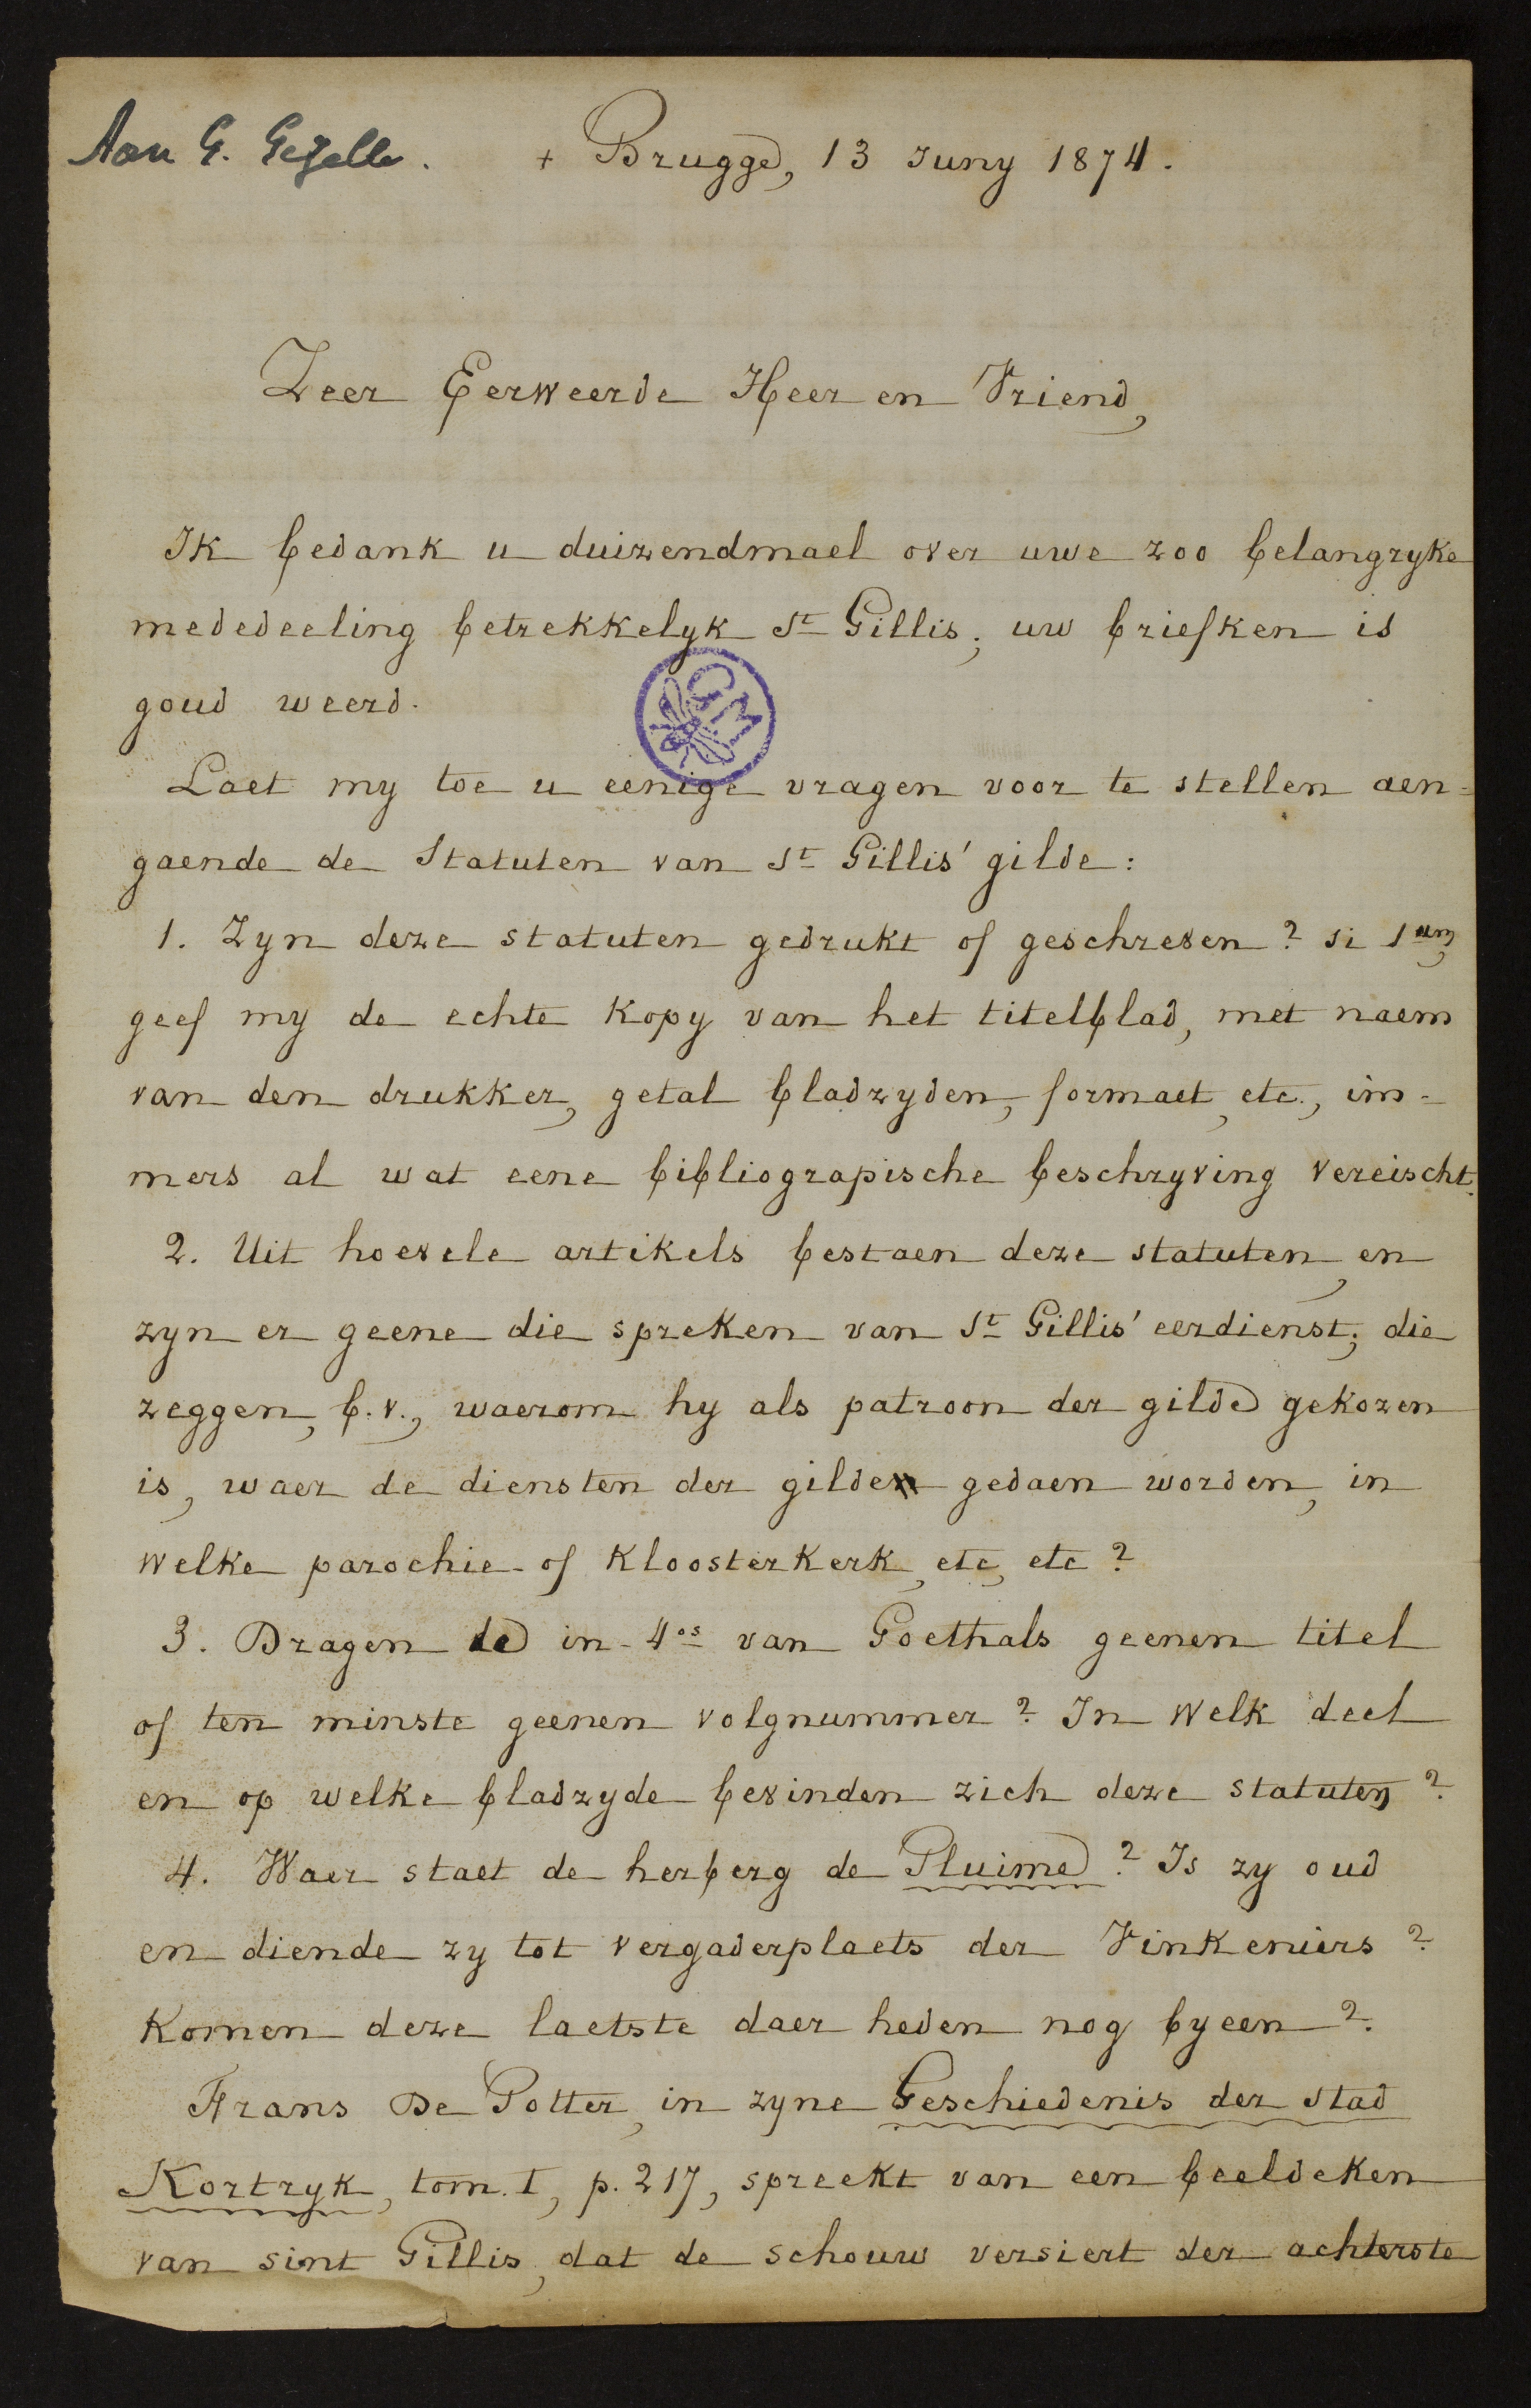 Aan G. Gezelle. + Brugge, 13 Juny 1874.
Zeer Eerweerde Heer en Vriend,
Ik bedank u duizendmael over uwe zoo belangryke
mededeeling betrekkelyk St Gillis; uw briefken is
goud weerd.
GM
Laet my toe u eenige vragen voor te stellen aen=
gaende de Statuten van St Gillis' gilde:
1. Zyn deze statuten gedrukt of geschreven? si 1um,
geef my de echte kopy van het titelblad, met naem
van den drukker, getal bladzyden, formaet, etc., im=
mers al wat eene bibliograpische beschryving vereischt.
2. Uit hoevele artikels bestaen deze statuten, en
zyn er geene die spreken van St Gillis' eerdienst; die
zeggen, b.v., waerom hy als patroon der gilde gekozen
is, waer de diensten der gilde gedaen worden, in
welke parochie- of kloosterkerk, etc, etc?
3. Dragen de in-4os van Goethals geenen titel
of ten minste geenen volgnummer? In welk deel
en op welke bladzyde bevinden zich deze statuten?
4. Waer staet de herberg de Pluime? Is zy oud
en diende zy tot vergaderplaets der Vinkeniers?
Komen deze laetste daer heden nog byeen?
Frans De Potter, in zyne Geschiedenis der stad
Kortryk, tom. I, p. 217, spreekt van een beeldeken
van sint Gillis, dat de schouw versiert der achterste